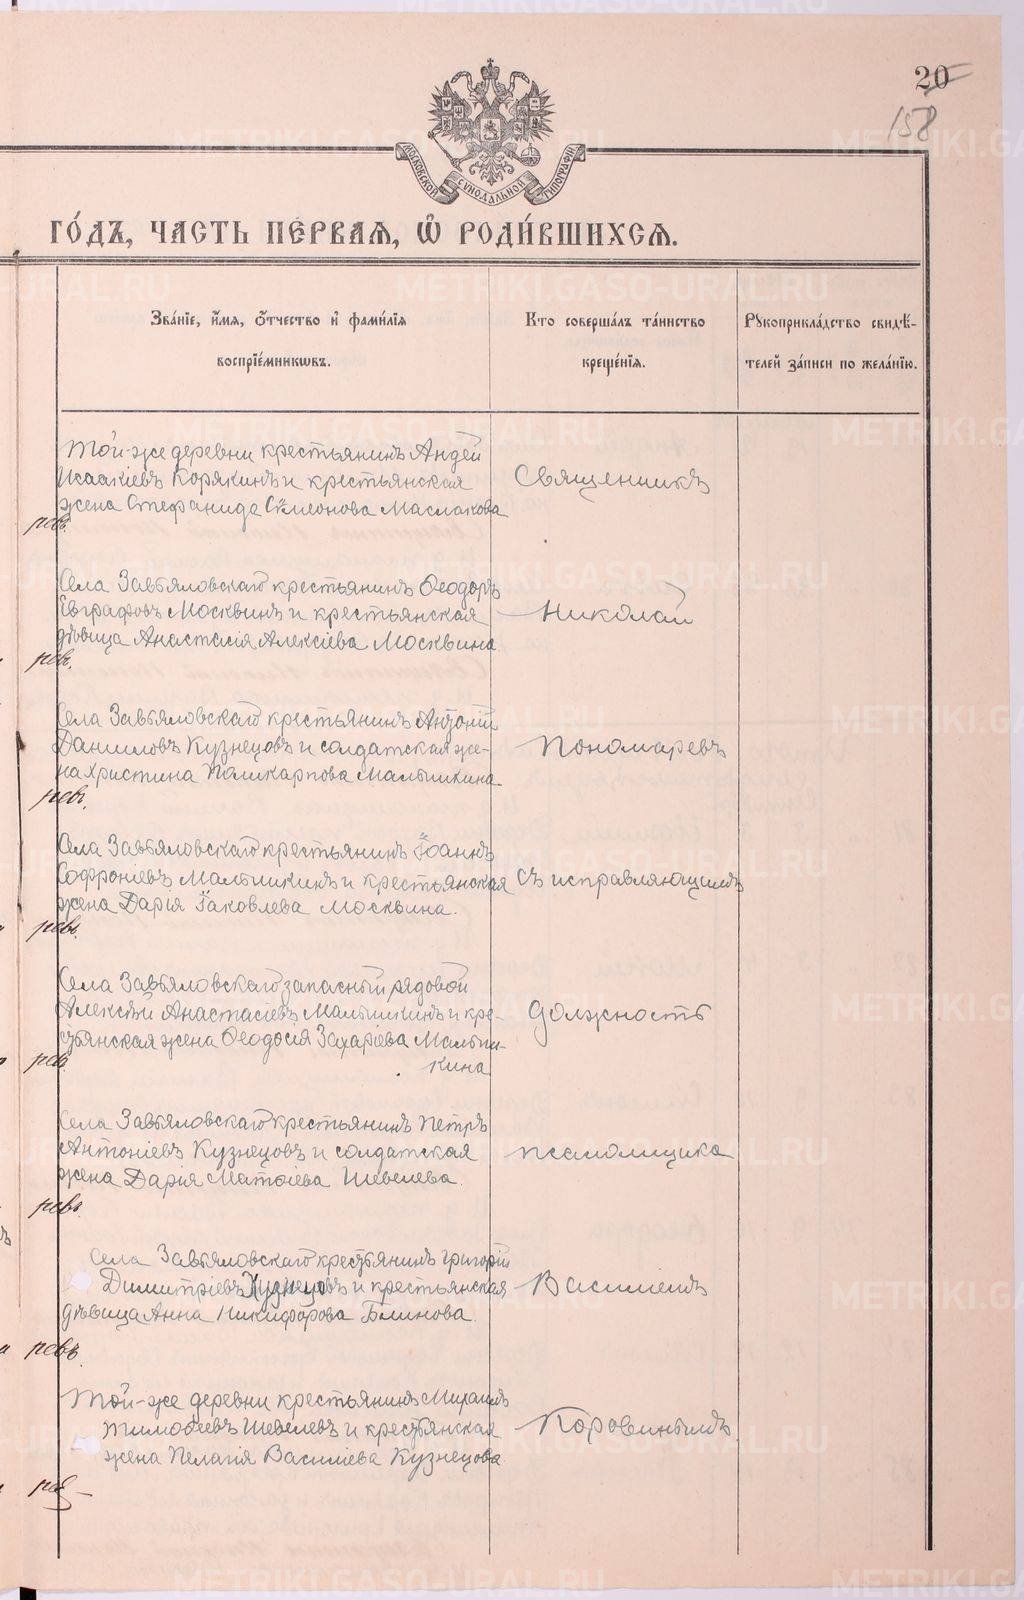 20
158
МОСКОВСКОЙ СѴНОДАЛЬНОЙ ТИПОГРАФІИ
ГО́ДЪ, ЧАСТЬ ПЕ́РВАѦ, Ѽ РОДИ́ВШИХСѦ.
Зва́нїе, и҆́мѧ, ѻ҆́тчество и҆ фами́лїѧ
воспрїе́мникѡвъ.
Кто соверша́лъ та́инство
креще́нїѧ.
Рꙋкоприкла́дство свидѣ́-
телей за́писи по жела́нїю.
Той-же деревни крестьянинъ Андей
Исаакіевъ Корякинъ и крестьянская
жена Стефанида Симеонова Маслакова
ревъ.
Священникъ
Села Завьяловскаго крестьянинъ Ѳеодоръ
Евграфовъ Москвинъ и крестьянская
дѣвица Анастасія Алексіева Москвина
ревъ.
Николай
Села Завьяловскаго крестьянинъ Антоній
Даниловъ Кузнецовъ и солдатская же-
на Христина Поликарпова Малышкина
ревъ.
Пономаревъ
Села Завьяловскаго крестьянинъ Іоаннъ
Софроніевъ Малышкинъ и крестьянская
жена Дарія Іаковлева Москвина.
ревъ.
съ исправляющимъ
Села Завьяловскаго запасный рядовой
Алексѣй Анастасіевъ Малышкинъ и кре-
стьянская жена Ѳеодосія Захаріева Малыш-
кина
ревъ
должность
Села Завьяловскаго крестьянинъ Петръ
Антоніевъ Кузнецовъ и солдатская
жена Дарія Матѳіева Шевелева.
ревъ.
псаломщика
Села Завьяловскаго крестьянинъ Григорій
Димитріевъ Кузнецовъ и крестьянская
дѣвица Анна Никифорова Блинова.
ревъ.
Василіемъ
Той-же деревни крестьянинъ Михаилъ
Тимоѳеевъ Шевелевъ и крестьянская
жена Пелагія Василіева Кузнецова
рев
Коровинымъ
METRIKI.GASO-URAL.RU